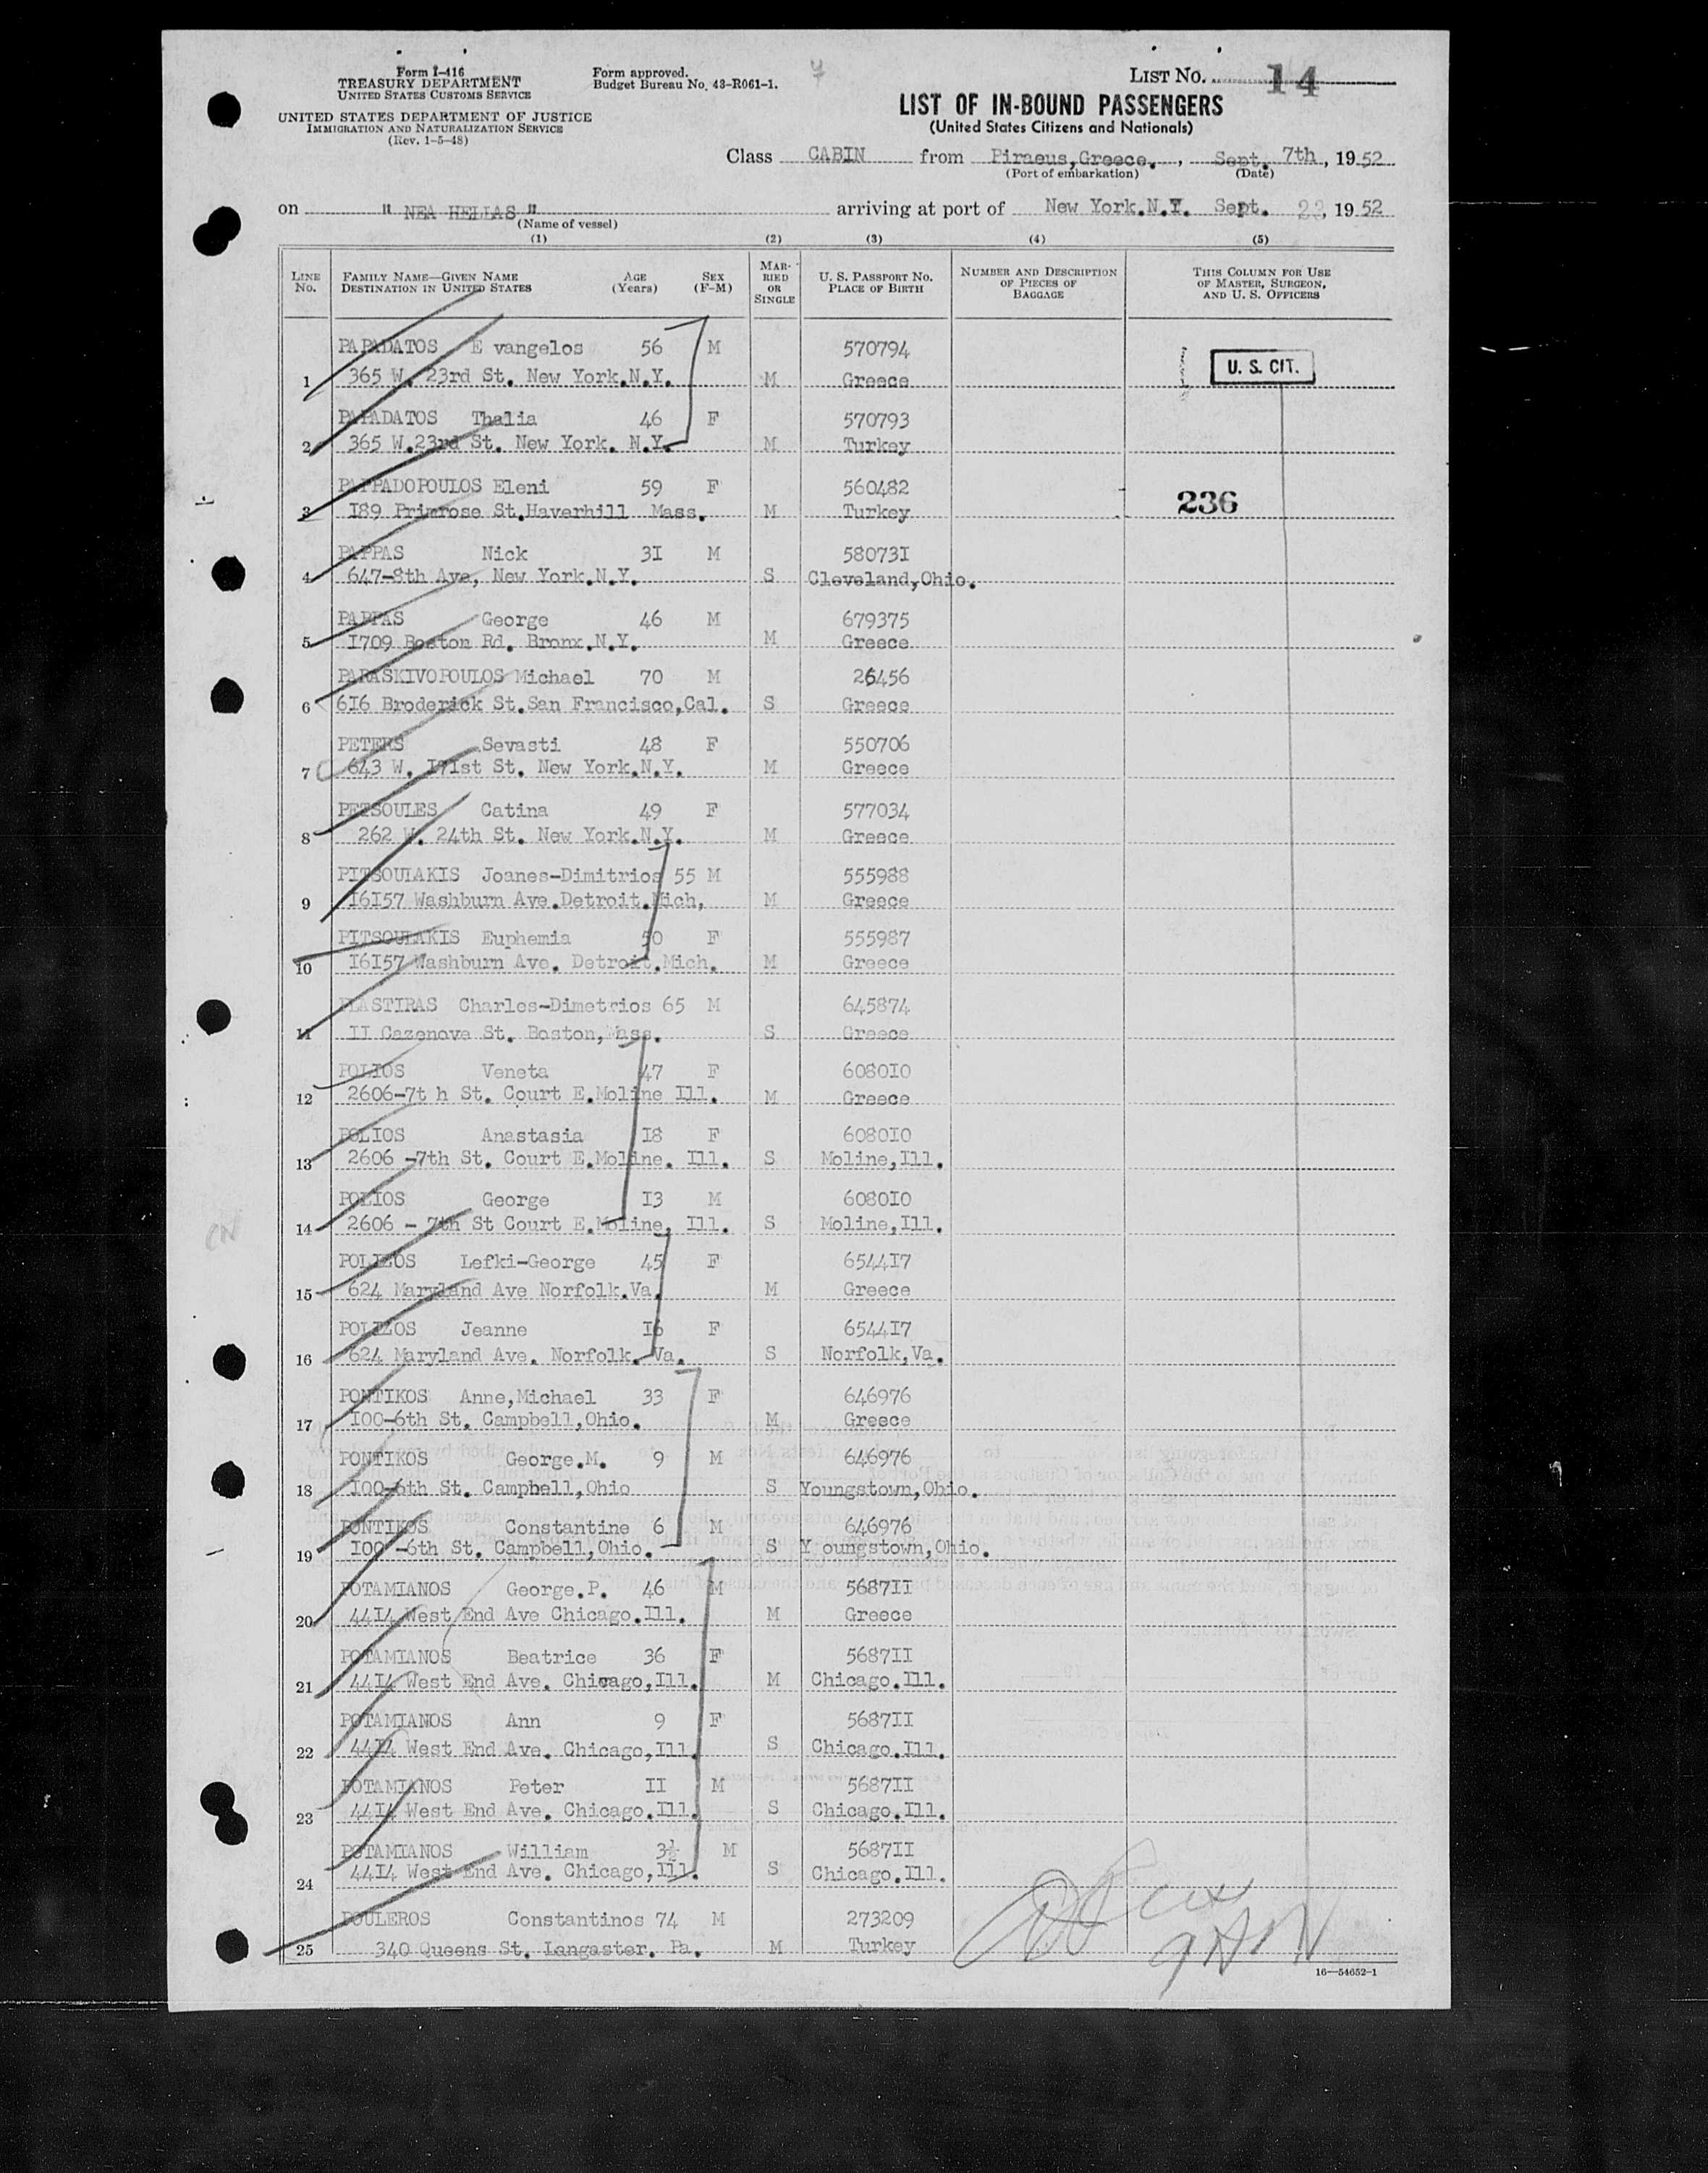 Form I-416
TREASURY DEPARTMENT
UNITED STATES CUSTOMS SERVICE
UNITED STATES DEPARTMENT OF JUSTICE
IMMIGRATION AND NATURALIZATION SERVICE
(Rev. 1-5-48)
Form approved.
Budget Bureau No. 43-R061-1.
LIST NO. 14
LIST OF IN-BOUND PASSENGERS
(United States Citizens and Nationals)
Class CABIN from Piraeus,Greece. , Sept. 7th, 1952
(Port of embarkation) (Date)
on " NEA HELLAS " arriving at port of New York.N.Y. Sept. 1952
(Name of vessel)
(1) (2) (3) (4) (5)
LINE NO. FAMILY NAME—GIVEN NAME DESTINATION IN UNITED STATES AGE (Years) SEX (F-M) MARRIED OR SINGLE U. S. PASSPORT NO. PLACE OF BIRTH NUMBER AND DESCRIPTION OF PIECES OF BAGGAGE THIS COLUMN FOR USE OF MASTER, SURGEON, AND U. S. OFFICERS
PAPADATOS E vangelos 56 M 570794 U. S. CIT.
1 365 W. 23rd St. New York.N.Y. M Greece
PAPADATOS Thalia 46 F 570793
2 365 W.23rd St. New York. N.Y. M Turkey
PAPPADOPOULOS Eleni 59 F 560482 236
3 I89 Primrose St.Haverhill Mass. M Turkey
PAPPAS Nick 3I M 58073I
4 647-8th Ave, New York.N.Y. S Cleveland,Ohio.
PAPPAS George 46 M 679375
5 I709 Boston Rd. Bronx.N.Y. M Greece
PARASKIVOPOULOS Michael 70 M 26456
6 6I6 Broderick St.San Francisco,Cal. S Greece
PETERS Sevasti 48 F 550706
7 643 W. I7Ist St. New York.N.Y. M Greece
PETSOULES Catina 49 F 577034
8 262 W. 24th St. New York.N.Y. M Greece
PITSOULAKIS Joanes-Dimitrios 55 M 555988
9 I6I57 Washburn Ave.Detroit.Mich, M Greece
PITSOULAKIS Euphemia 50 F 555987
10 I6I57 Washburn Ave. Detroit.Mich. M Greece
PLASTIRAS Charles-Dimetrios 65 M 645874
11 II Cazenova St. Boston,Mass. S Greece
POLIOS Veneta 47 F 6080I0
12 2606-7t h St. Court E.Moline Ill. M Greece
POLIOS Anastasia I8 F 6080I0
13 2606 -7th St. Court E.Moline. Ill. S Moline,Ill.
POLIOS George I3 M 6080I0
14 2606 - 7th St Court E.Moline, Ill. S Moline,Ill.
POLIZOS Lefki-George 45 F 6544I7
15 624 Maryland Ave Norfolk.Va. M Greece
POLIZOS Jeanne I6 F 6544I7
16 624 Maryland Ave. Norfolk. Va. S Norfolk,Va.
PONTIKOS Anne,Michael 33 F 646976
17 I00-6th St. Campbell,Ohio. M Greece
PONTIKOS George.M. 9 M 646976
18 I00-6th St. Campbell,Ohio S Youngstown,Ohio.
PONTIKOS Constantine 6 M 646976
19 I00 -6th St. Campbell,Ohio. S Y oungstown,Ohio.
POTAMIANOS George.P. 46 M 5687II
20 44I4 West End Ave Chicago.Ill. M Greece
POTAMIANOS Beatrice 36 F 5687II
21 44I4 West End Ave. Chicago,Ill. M Chicago.Ill.
POTAMIANOS Ann 9 F 5687II
22 44I4 West End Ave. Chicago,Ill. S Chicago.Ill.
POTAMIANOS Peter II M 5687II
23 44I4 West End Ave. Chicago.Ill. S Chicago.Ill.
POTAMIANOS William 3½ M 5687II
24 44I4 West End Ave. Chicago,Ill. S Chicago.Ill.
POULEROS Constantinos 74 M 273209
25 340 Queens St. Langaster. Pa. M Turkey
16—54652-1